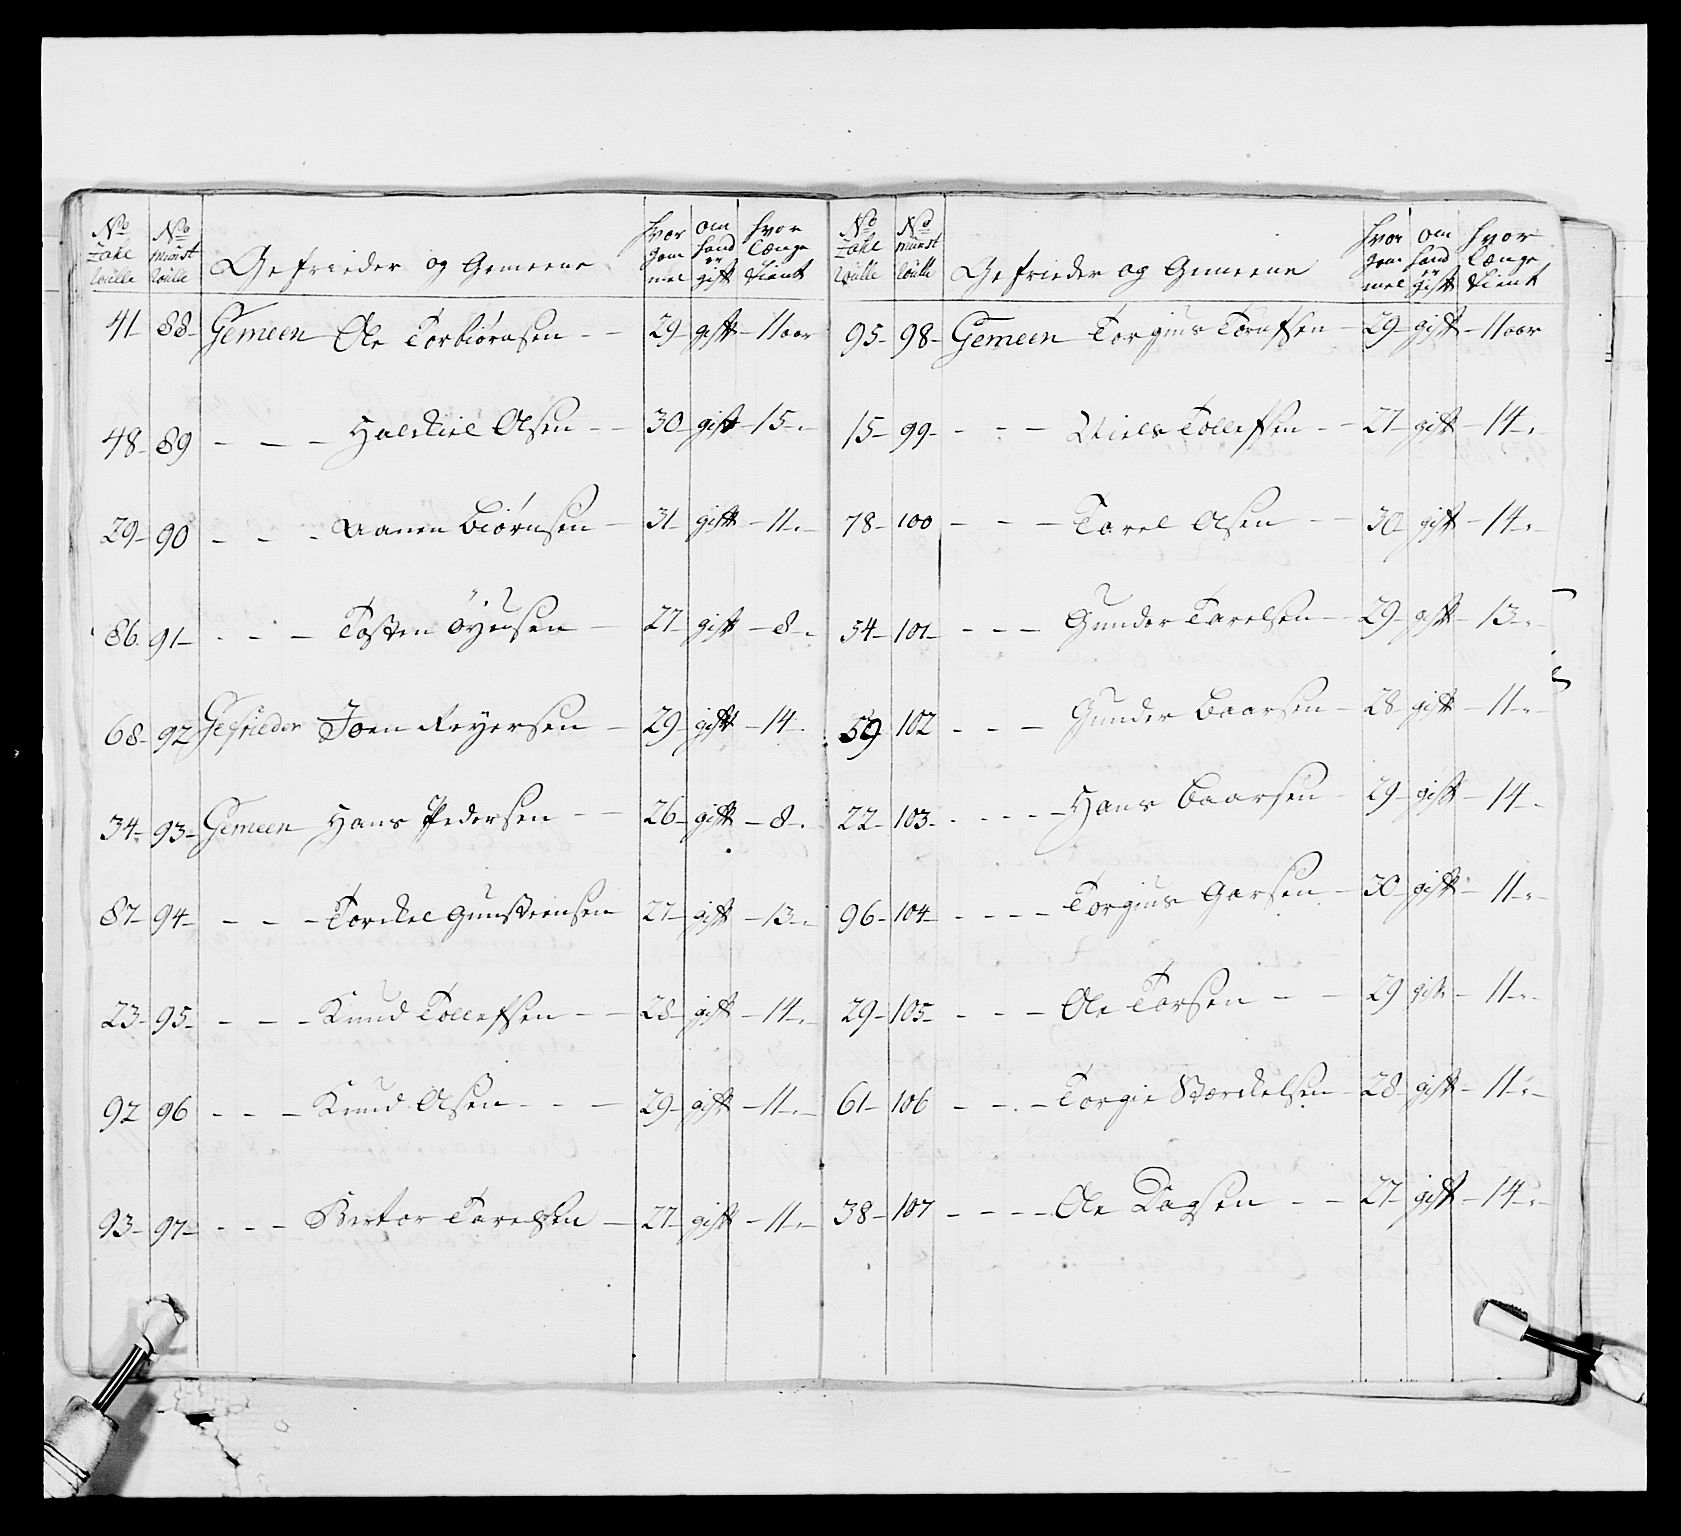 No Zahl Roulle | No Munst Roulle | Gefrieder og Gemeene | hvor gam mel | om hand er gift | hvor Længe tient
41 88 Gemeen Ole Torbiørnsen 29 gift 11 aar
48 89 - - - Halckiel Olsen 30 gift 15
29 90 - - - Aanen Biørnsen 31 gift 11
86 91 - - - Tosten Øyensen 27 gift 8
68 92 Gefrieder Joen Reyersen 29 gift 14
34 93 Gemeen Hans Pedersen 26 gift 8
87 94 - - - Torckel Gunsteensen 27 gift 13
23 95 - - - Knud Tollefsen 28 gift 14
92 96 - - - Knud Olsen 29 gift 11
93 97 - - - Tarelsen 27 gift 11
No Zahl Roulle | No Munst Roulle | Gefrieder og Gemeene | hvor gam mel | om hand er gift | hvor Længe tient
95 98 Gemeen Torgius 29 gift 11 aar
15 99 - - - Niels Tollefsen 27 gift 14
78 100 - - - Tarel Olsen 30 gift 14
54 101 - - - Gunder Tarelsen 29 gift 13
59 102 - - - Gunder Baarsen 28 gift 11
22 103 - - - - Hans Baarsen 29 gift 14
96 104 - - - - Torgius Garsen 30 gift 11
29 105 - - - Ole Torsen 29 gift 11
61 106 - - - Torgie 28 gift 11
38 107 - - - - Ole Dagsen 27 gift 14